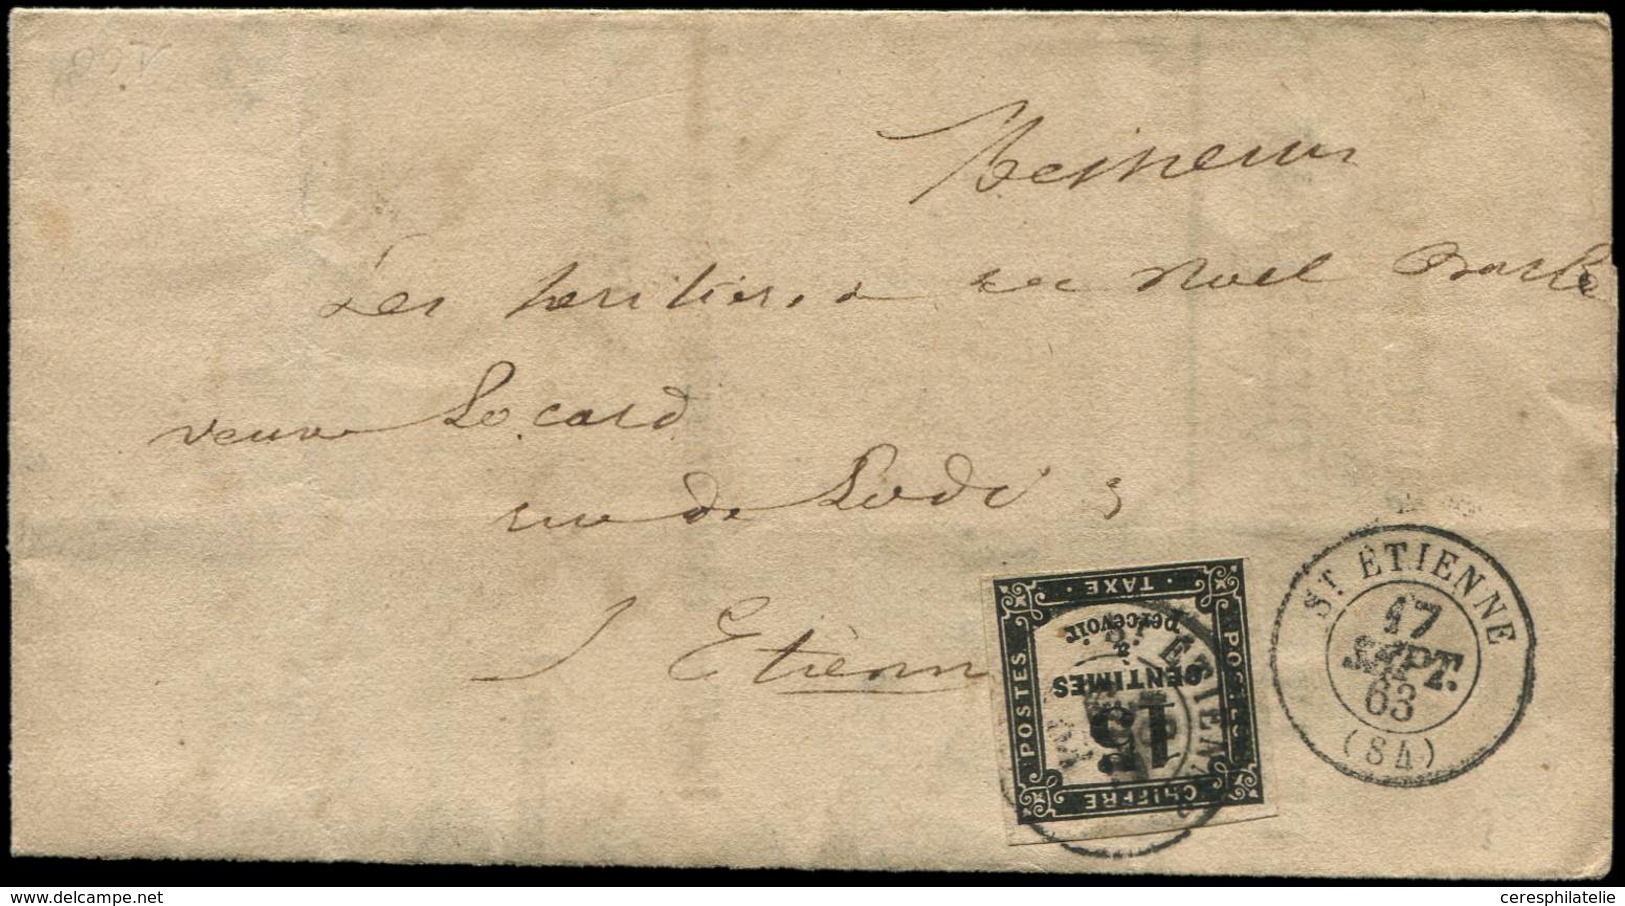 Les heritiers de Noel
veuve Locard
rue de Lodi 3
St Etienne
CHIFFRE · TAXE ·
POSTES
POSTES
15
CENTIMES
à
percevoir
ST ÉTIENNE
17
SEPT.
63
(84)
www.delcampe.net
ceresphilatelie